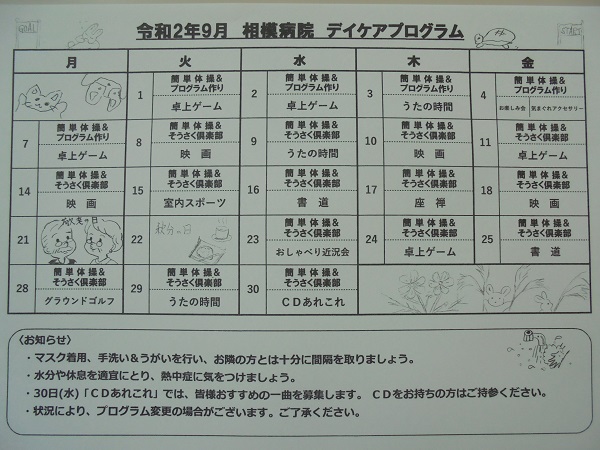 GOAL
令和2年9月 相模病院 デイケアプログラム
月 火 水 木 金
1
簡単体操&
プログラム作り
卓上ゲーム
2
簡単体操&
プログラム作り
卓上ゲーム
3
簡単体操&
プログラム作り
うたの時間
4
簡単体操&
プログラム作り
お楽しみ会 気まぐれアクセサリー
7
簡単体操&
プログラム作り
卓上ゲーム
8
簡単体操&
そうさく倶楽部
映画
9
簡単体操&
そうさく倶楽部
うたの時間
10
簡単体操&
そうさく倶楽部
映画
11
簡単体操&
そうさく倶楽部
卓上ゲーム
14
簡単体操&
そうさく倶楽部
映画
15
簡単体操&
そうさく倶楽部
室内スポーツ
16
簡単体操&
そうさく倶楽部
書道
17
簡単体操&
そうさく倶楽部
座禅
18
簡単体操&
そうさく倶楽部
映画
21
敬老の日
22
秋分の日
23
簡単体操&
そうさく倶楽部
おしゃべり近況会
24
簡単体操&
そうさく倶楽部
卓上ゲーム
25
簡単体操&
そうさく倶楽部
書道
28
簡単体操&
そうさく倶楽部
グラウンドゴルフ
29
簡単体操&
そうさく倶楽部
うたの時間
30
簡単体操&
そうさく倶楽部
CDあれこれ
〈お知らせ〉
・マスク着用、手洗い&うがいを行い、お隣の方とは十分に間隔を取りましょう。
・水分や休息を適宜にとり、熱中症に気をつけましょう。
・30日(水)「CDあれこれ」では、皆様おすすめの一曲を募集します。 CDをお持ちの方はご持参ください。
・状況により、プログラム変更の場合がございます。ご了承ください。